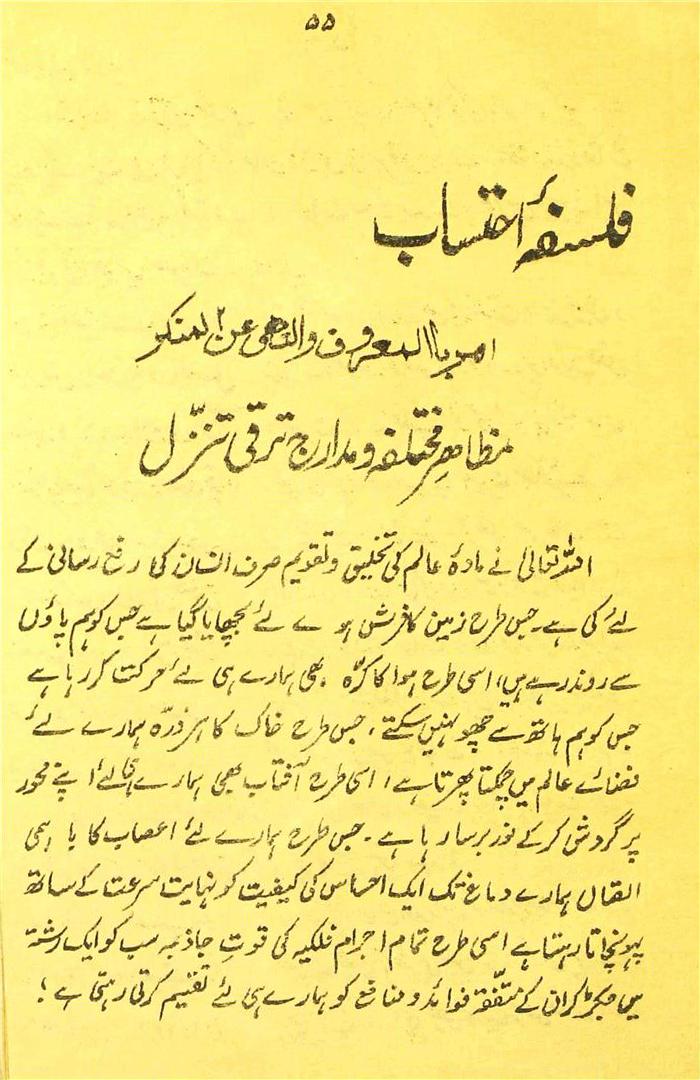 ۵۵
فلسفۂ احتساب
امر باالمعروف والنھی عن المنکر
مظاھرِ مختلفہ و مدارج ترقی تنزّل
اللہ تعالیٰ نے مادۂ عالم کی تخلیق و تقویم صرف انسان کی رفع رسانی کے
لئے کی ہے۔ جس طرح زمین کا فرش ہو ے لئے بچھایا گیا ہے جس کو ہم پاؤں
سے روند رہے ہیں، اسی طرح ہوا کا کرّہ بھی ہمارے ہی لئے حرکت کر رہا ہے
جس کو ہم ہاتھ سے چھو نہیں سکتے، جس طرح خاک کا ہر ذرّہ ہمارے لئے
فضائے عالم میں چمکتا پھرتا ہے، اسی طرح آفتاب بھی ہمارے ہی لئے اپنے محور
پر گردش کر کے نور برسا رہا ہے۔ جس طرح ہمارے لئے اعصاب کا باہمی
اتصال ہمارے دماغ تک ایک احساس کی کیفیت کو نہایت سرعت کے ساتھ
پہونچاتا رہتا ہے اسی طرح تمام اجرام فلکیہ کی قوتِ جاذبہ سب کو ایک رشتہ
میں جکڑ کر ان کے متفّقہ فوائد و منافع کو ہمارے ہی لئے تقسیم کرتی رہتی ہے؛